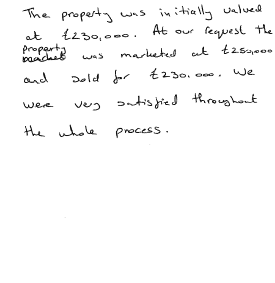 The property was initially valued
at £230,000. At our request the
property
was marketed at £250,000
and sold for £230.000. We
were very satisfied throughout
the whole process.